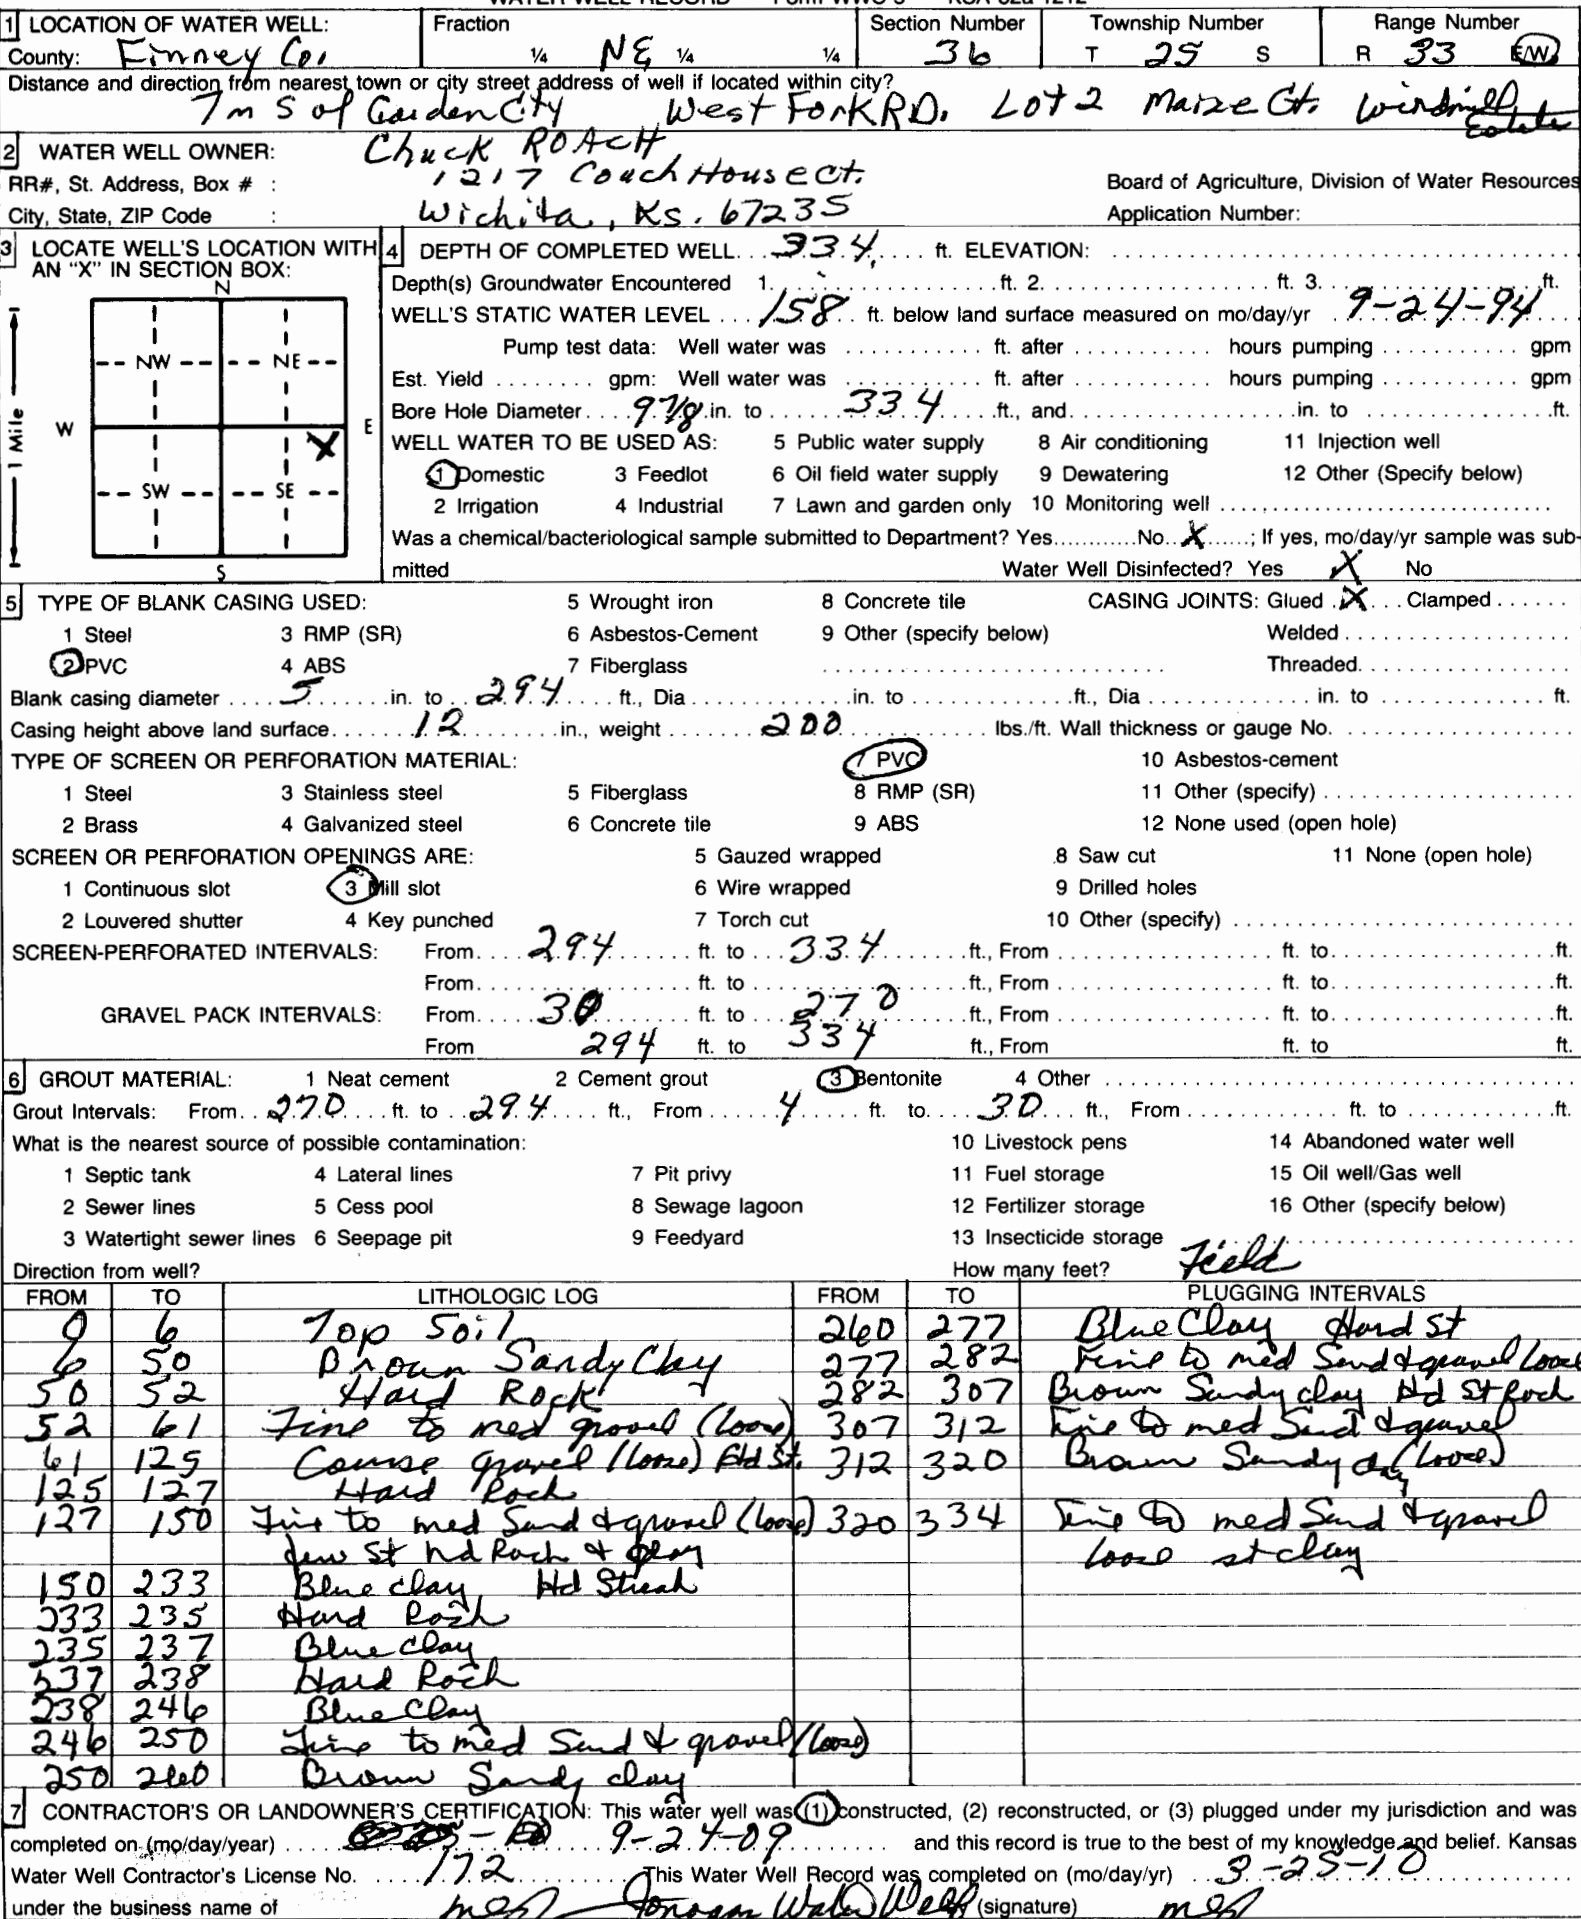 WATER WELL RECORD Form WWC-5 KSA 82a-1212
1 LOCATION OF WATER WELL: Fraction Section Number Township Number Range Number
County: Finney Co. ¼ NE ¼ ¼ 36 T 25 S R 33 E/W
Distance and direction from nearest town or city street address of well if located within city?
7m S of Garden City West Fork RD. Lot 2 Maize Ct. Windmill Estate
2 WATER WELL OWNER: Chuck ROACH
RR#, St. Address, Box # : 1217 Coach House Ct. Board of Agriculture, Division of Water Resources
City, State, ZIP Code : Wichita, Ks. 67235 Application Number:
3 LOCATE WELL'S LOCATION WITH AN "X" IN SECTION BOX:
N
NW NE
W E
X
SW SE
S
1 Mile
4 DEPTH OF COMPLETED WELL 334 ft. ELEVATION:
Depth(s) Groundwater Encountered 1. ft. 2. ft. 3. ft.
WELL'S STATIC WATER LEVEL 158 ft. below land surface measured on mo/day/yr 9-24-94
Pump test data: Well water was ft. after hours pumping gpm
Est. Yield gpm: Well water was ft. after hours pumping gpm
Bore Hole Diameter 9 7/8 in. to 334 ft., and in. to ft.
WELL WATER TO BE USED AS: 5 Public water supply 8 Air conditioning 11 Injection well
1 Domestic 3 Feedlot 6 Oil field water supply 9 Dewatering 12 Other (Specify below)
2 Irrigation 4 Industrial 7 Lawn and garden only 10 Monitoring well
Was a chemical/bacteriological sample submitted to Department? Yes No X ; If yes, mo/day/yr sample was sub-
mitted Water Well Disinfected? Yes X No
5 TYPE OF BLANK CASING USED: 5 Wrought iron 8 Concrete tile CASING JOINTS: Glued X Clamped
1 Steel 3 RMP (SR) 6 Asbestos-Cement 9 Other (specify below) Welded
2 PVC 4 ABS 7 Fiberglass Threaded
Blank casing diameter 5 in. to 294 ft., Dia in. to ft., Dia in. to ft.
Casing height above land surface 12 in., weight 200 lbs./ft. Wall thickness or gauge No.
TYPE OF SCREEN OR PERFORATION MATERIAL: 7 PVC 10 Asbestos-cement
1 Steel 3 Stainless steel 5 Fiberglass 8 RMP (SR) 11 Other (specify)
2 Brass 4 Galvanized steel 6 Concrete tile 9 ABS 12 None used (open hole)
SCREEN OR PERFORATION OPENINGS ARE: 5 Gauzed wrapped 8 Saw cut 11 None (open hole)
1 Continuous slot 3 Mill slot 6 Wire wrapped 9 Drilled holes
2 Louvered shutter 4 Key punched 7 Torch cut 10 Other (specify)
SCREEN-PERFORATED INTERVALS: From 294 ft. to 334 ft., From ft. to ft.
From ft. to ft., From ft. to ft.
GRAVEL PACK INTERVALS: From 30 ft. to 270 ft., From ft. to ft.
From 294 ft. to 334 ft., From ft. to ft.
6 GROUT MATERIAL: 1 Neat cement 2 Cement grout 3 Bentonite 4 Other
Grout Intervals: From 270 ft. to 294 ft., From 4 ft. to 30 ft., From ft. to ft.
What is the nearest source of possible contamination: 10 Livestock pens 14 Abandoned water well
1 Septic tank 4 Lateral lines 7 Pit privy 11 Fuel storage 15 Oil well/Gas well
2 Sewer lines 5 Cess pool 8 Sewage lagoon 12 Fertilizer storage 16 Other (specify below)
3 Watertight sewer lines 6 Seepage pit 9 Feedyard 13 Insecticide storage Field
Direction from well? How many feet?
FROM TO LITHOLOGIC LOG FROM TO PLUGGING INTERVALS
0 6 Top Soil 260 277 Blue Clay Hard St
6 50 Brown Sandy Clay 277 282 Fine to med Sand & gravel loose
50 52 Hard Rock 282 307 Brown Sandy clay Hd St Rock
52 61 Fine to med gravel (loose) 307 312 Fine to med Sand & gravel (loose)
61 125 Course gravel (loose) Hd St. 312 320 Brown Sandy clay
125 127 Hard Rock
127 150 Fine to med Sand & gravel (loose) 320 334 Fine to med Sand & gravel
few St hd Rock & clay loose st clay
150 233 Blue clay Hd Streak
233 235 Hard Rock
235 237 Blue Clay
237 238 Hard Rock
238 246 Blue Clay
246 250 Fine to med Sand & gravel (loose)
250 260 Brown Sandy clay
7 CONTRACTOR'S OR LANDOWNER'S CERTIFICATION: This water well was (1) constructed, (2) reconstructed, or (3) plugged under my jurisdiction and was
completed on (mo/day/year) 9-24-09 and this record is true to the best of my knowledge and belief. Kansas
Water Well Contractor's License No. 172 This Water Well Record was completed on (mo/day/yr) 3-25-10
under the business name of Water Well (signature)